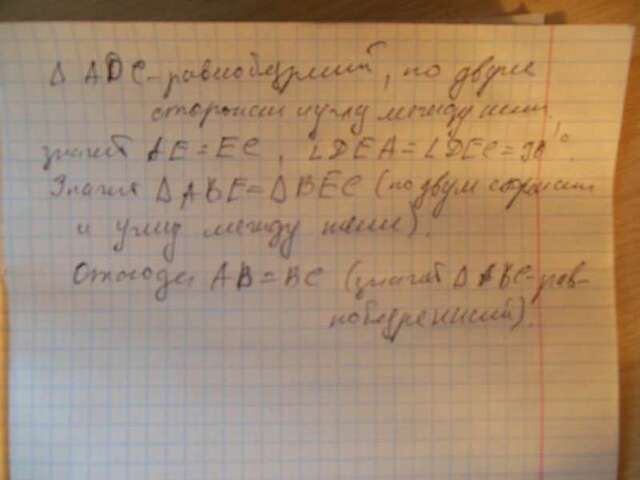 Δ ADC-равнобедренный, по двум
сторонам и углу между ними.
значит AE = EC, ∠DEA = ∠DEC = 90°.
Значит Δ ABE = Δ BEC (по двум сторонам
и углу между ними).
Отсюда AB = BC (значит Δ ABC-рав-
нобедренный).